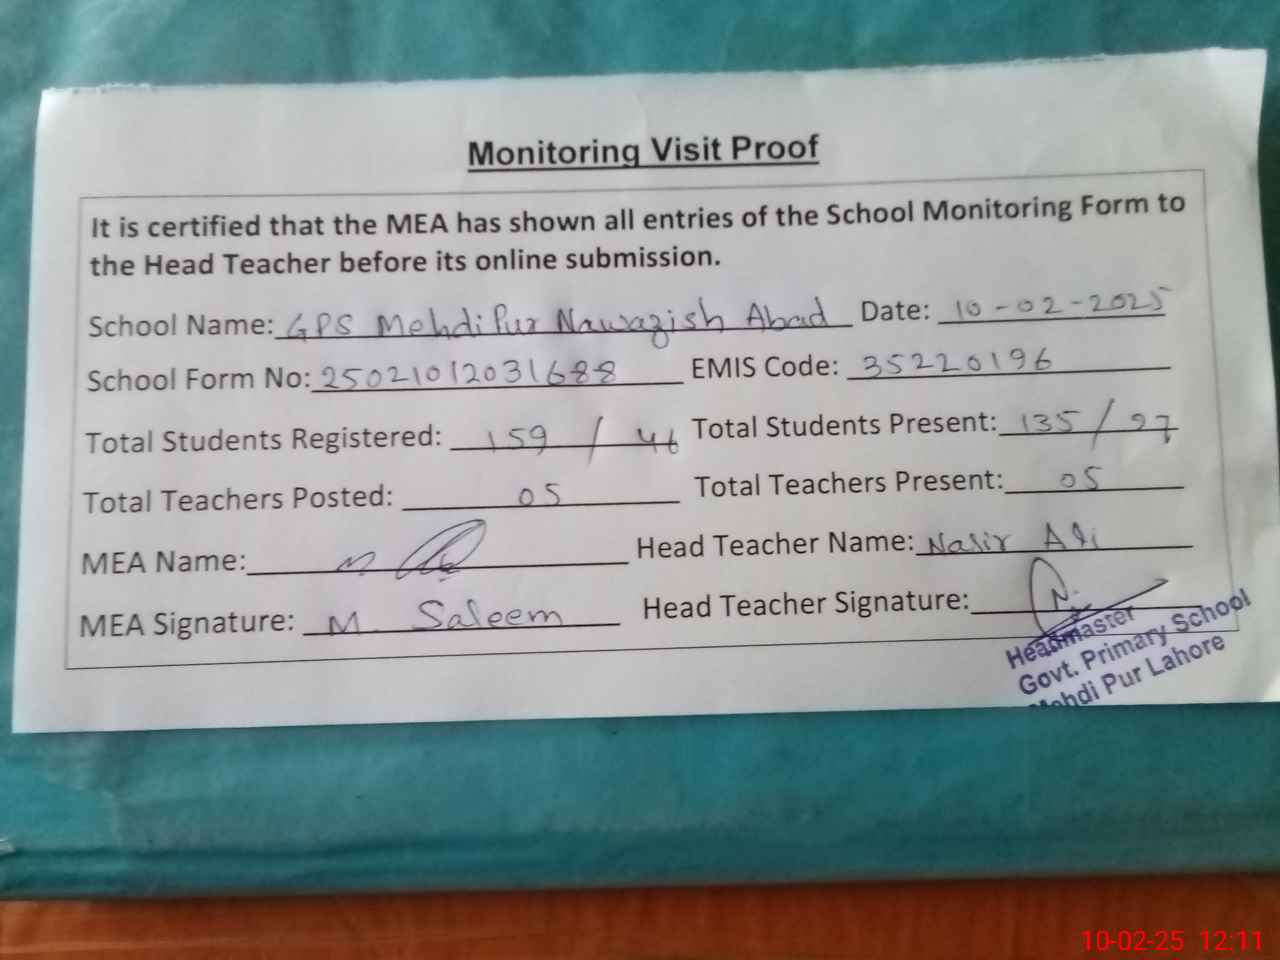 Monitoring Visit Proof
It is certified that the MEA has shown all entries of the School Monitoring Form to
the Head Teacher before its online submission.
School Name: GPS Mehdi Pur Nawazish Abad Date: 10-02-2025
School Form No: 25021012031688 EMIS Code: 35220196
Total Students Registered: 159 / 46 Total Students Present: 135 / 27
Total Teachers Posted: 05 Total Teachers Present: 05
MEA Name: Head Teacher Name: Nasir Ali
MEA Signature: M. Saleem Head Teacher Signature:
Headmaster
Govt. Primary School
Mehdi Pur Lahore
10-02-25 12:11